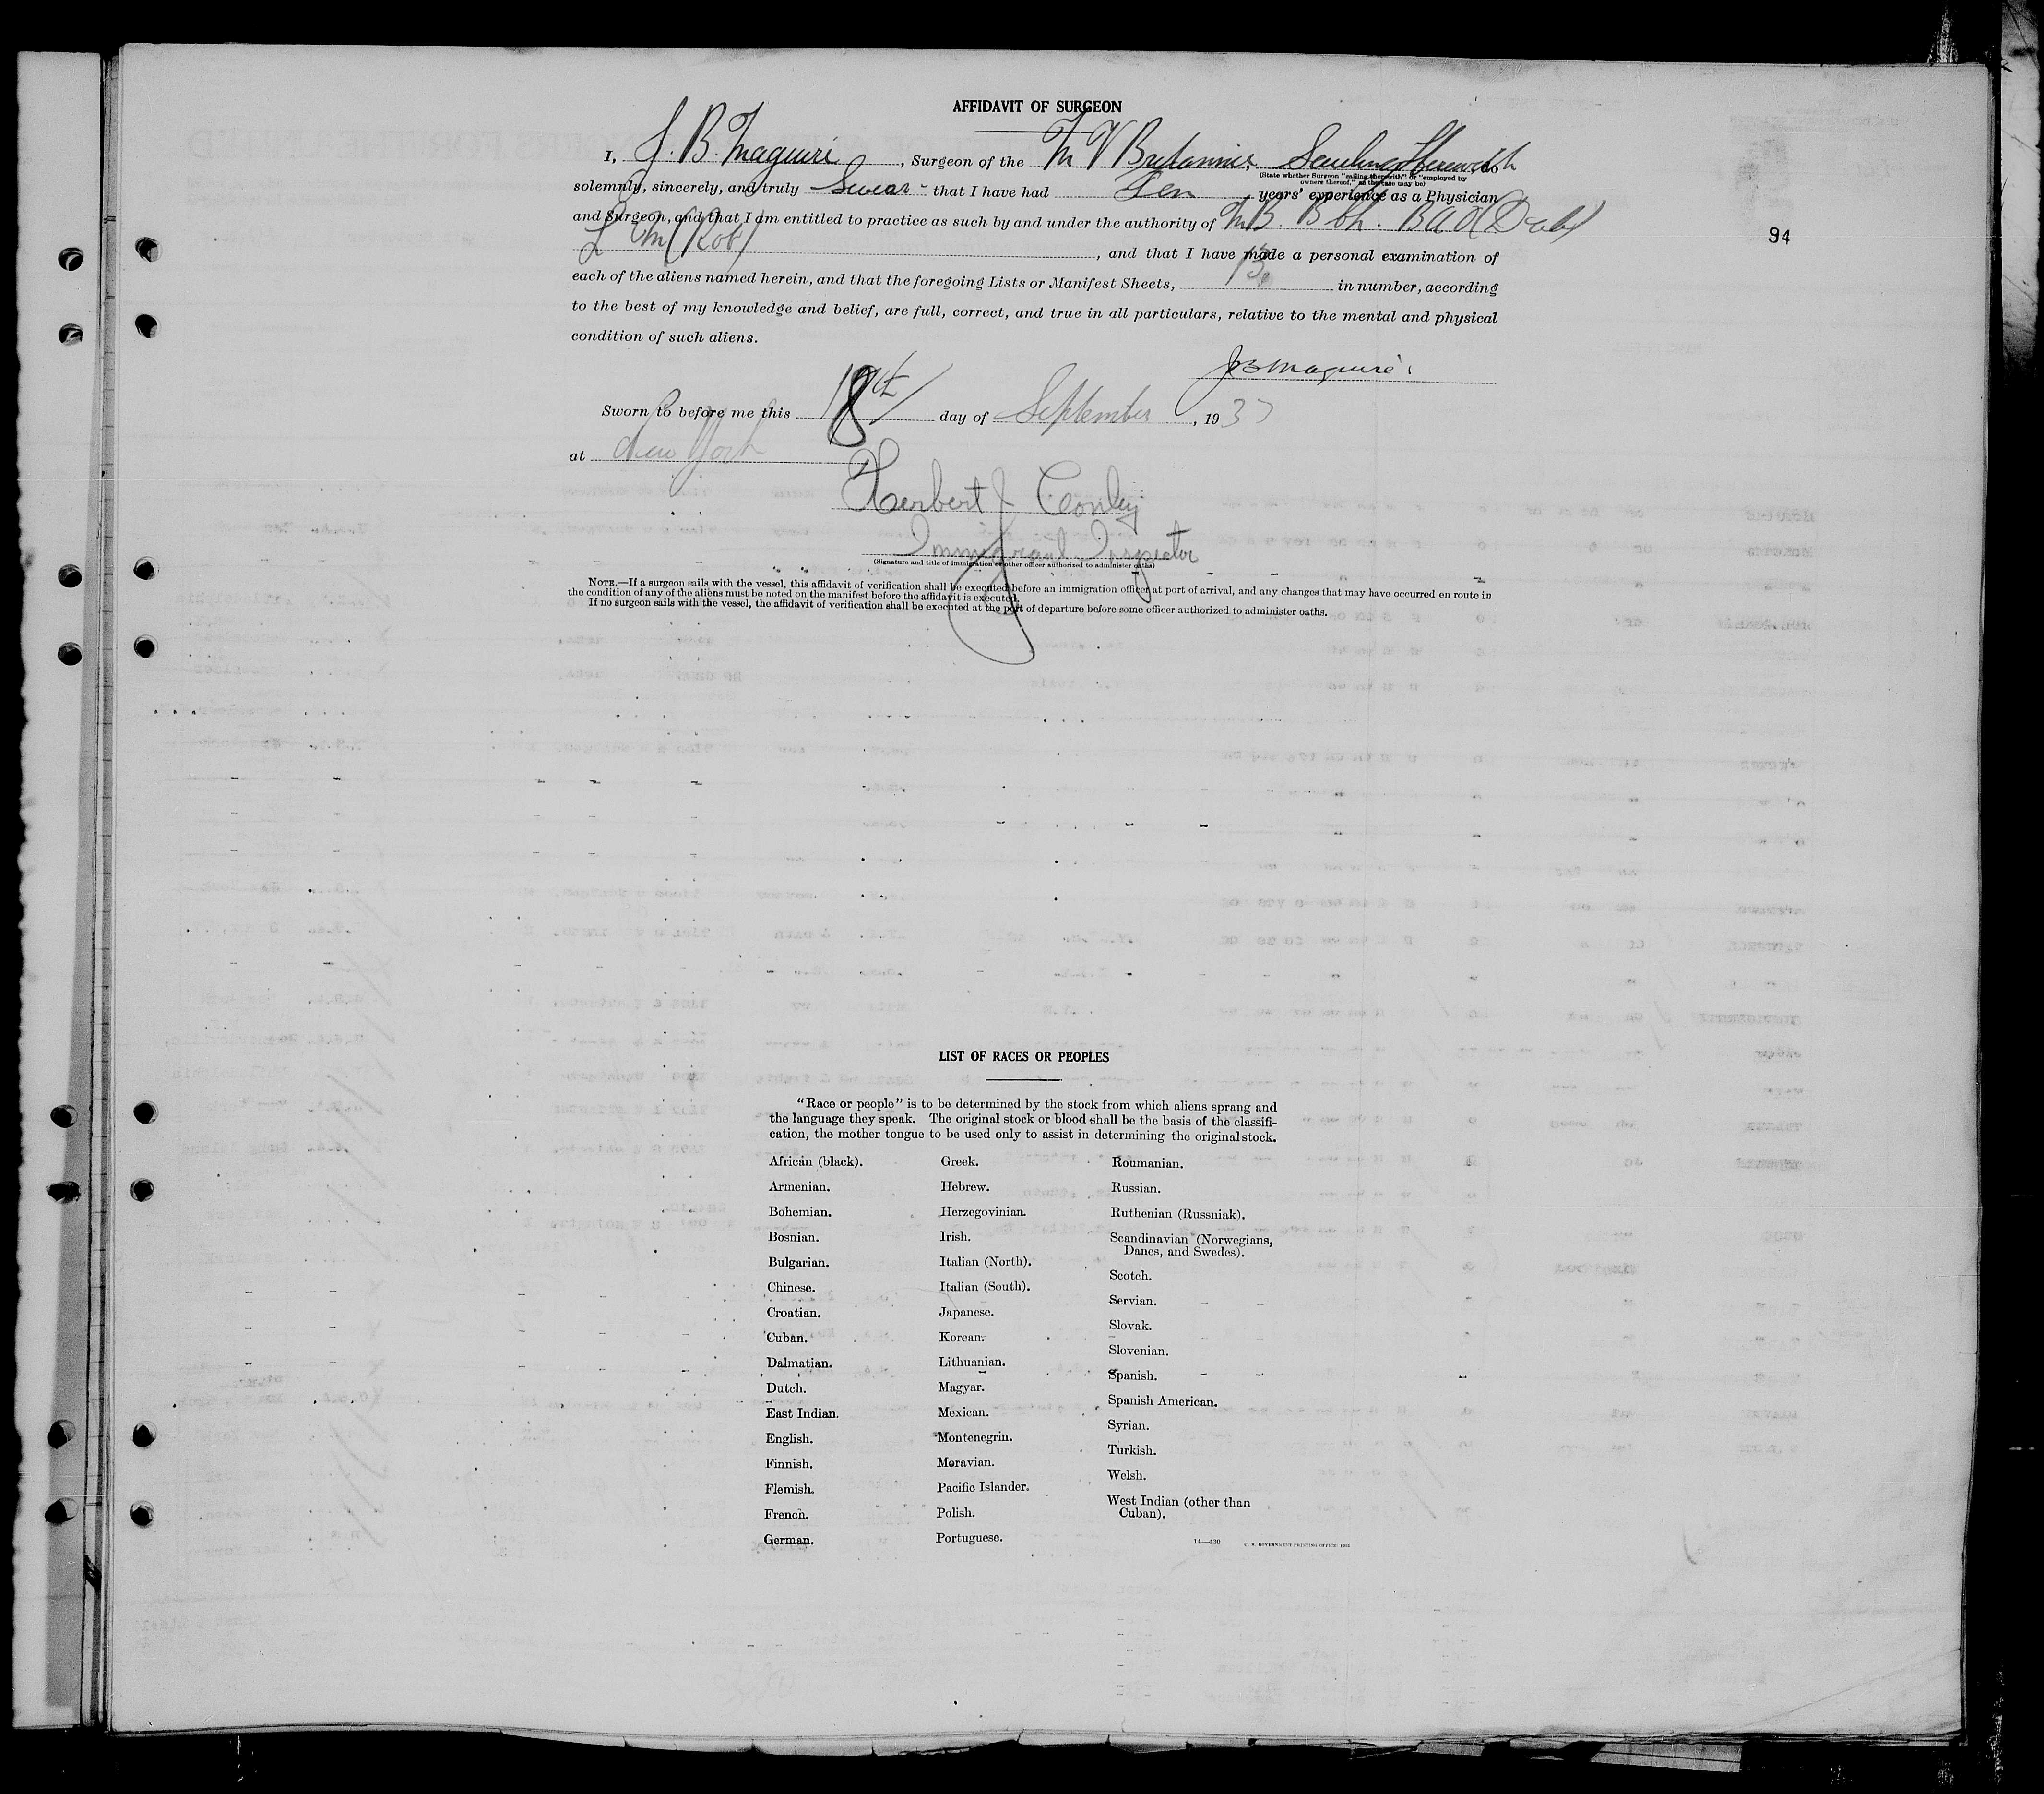 AFFIDAVIT OF SURGEON
I, J. B. Maguire, Surgeon of the M V Britannic, Sailing therewith, do
(State whether Surgeon "sailing therewith" or "employed by
owners thereof," as the case may be)
solemnly, sincerely, and truly Swear that I have had Ten years' experience as a Physician
and Surgeon, and that I am entitled to practice as such by and under the authority of M.B. B.Ch. B A O
L M (Rot), and that I have made a personal examination of
94
each of the aliens named herein, and that the foregoing Lists or Manifest Sheets, 13 in number, according
to the best of my knowledge and belief, are full, correct, and true in all particulars, relative to the mental and physical
condition of such aliens.
J B Maguire
Sworn to before me this 18th day of September, 1937
at New York
Herbert J Conley
Immigrant Inspector
(Signature and title of immigration or other officer authorized to administer oaths)
NOTE.—If a surgeon sails with the vessel, this affidavit of verification shall be executed before an immigration officer at port of arrival, and any changes that may have occurred en route in
the condition of any of the aliens must be noted on the manifest before the affidavit is executed.
If no surgeon sails with the vessel, the affidavit of verification shall be executed at the port of departure before some officer authorized to administer oaths.
LIST OF RACES OR PEOPLES
"Race or people" is to be determined by the stock from which aliens sprang and
the language they speak. The original stock or blood shall be the basis of the classifi-
cation, the mother tongue to be used only to assist in determining the original stock.
African (black).
Armenian.
Bohemian.
Bosnian.
Bulgarian.
Chinese.
Croatian.
Cuban.
Dalmatian.
Dutch.
East Indian.
English.
Finnish.
Flemish.
French.
German.
Greek.
Hebrew.
Herzegovinian.
Irish.
Italian (North).
Italian (South).
Japanese.
Korean.
Lithuanian.
Magyar.
Mexican.
Montenegrin.
Moravian.
Pacific Islander.
Polish.
Portuguese.
Roumanian.
Russian.
Ruthenian (Russniak).
Scandinavian (Norwegians,
Danes, and Swedes).
Scotch.
Servian.
Slovak.
Slovenian.
Spanish.
Spanish American.
Syrian.
Turkish.
Welsh.
West Indian (other than
Cuban).
14—430 U. S. GOVERNMENT PRINTING OFFICE